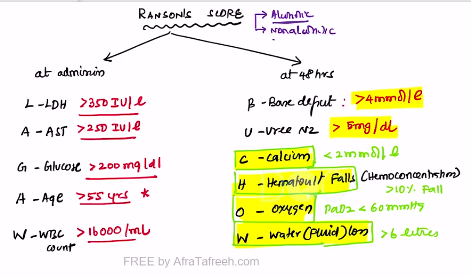 RANSON'S SCORE
Alcoholic
nonalcoholic
at admission
L - LDH >350 IU/l
A - AST >250 IU/l
G - Glucose >200 mg/dl
A - Age >55 yrs *
W - WBC count >16000/mL
at 48 hrs
B - Base deficit : >4mmol/l
U - Urea N2 >5mg/dl
C - Calcium <2mmol/l
H - Hematocrit Falls (Hemoconcentration)
>10% Fall
O - Oxygen PaO2 <60mmHg
W - Water (fluid) loss >6 litres
FREE by AfraTafreeh.com